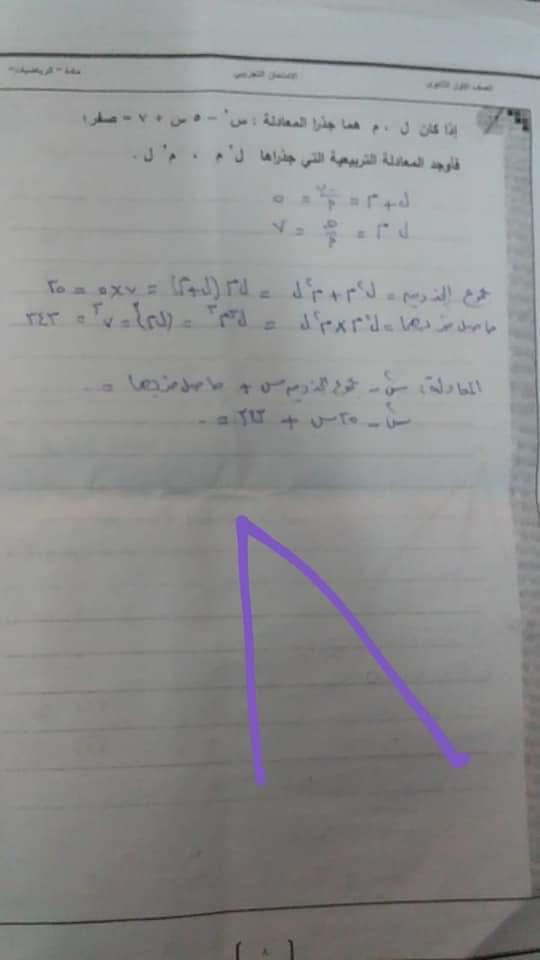 الصف الأول الثانوى
الامتحان التجريبي
مادة " الرياضيات "
إذا كان ل ، م هما جذرا المعادلة : س² - ٥ س + ٧ = صفر؛
فأوجد المعادلة التربيعية التي جذراها ل² م ، م² ل .
ل + م = = ٥
ل م = = ٧
مجموع الجذرين = ل²م + م²ل = ل م (ل + م) = ٧ × ٥ = ٢٥
حاصل ضربهما = ل²م × م²ل = ل³م³ = (ل م)³ = ٧³ = ٢٤٣
المعادلة : س² - مجموع الجذرين س + حاصل ضربهما = ٠
س² - ٢٥ س + ٢٤٣ = ٠
[ ٨ ]